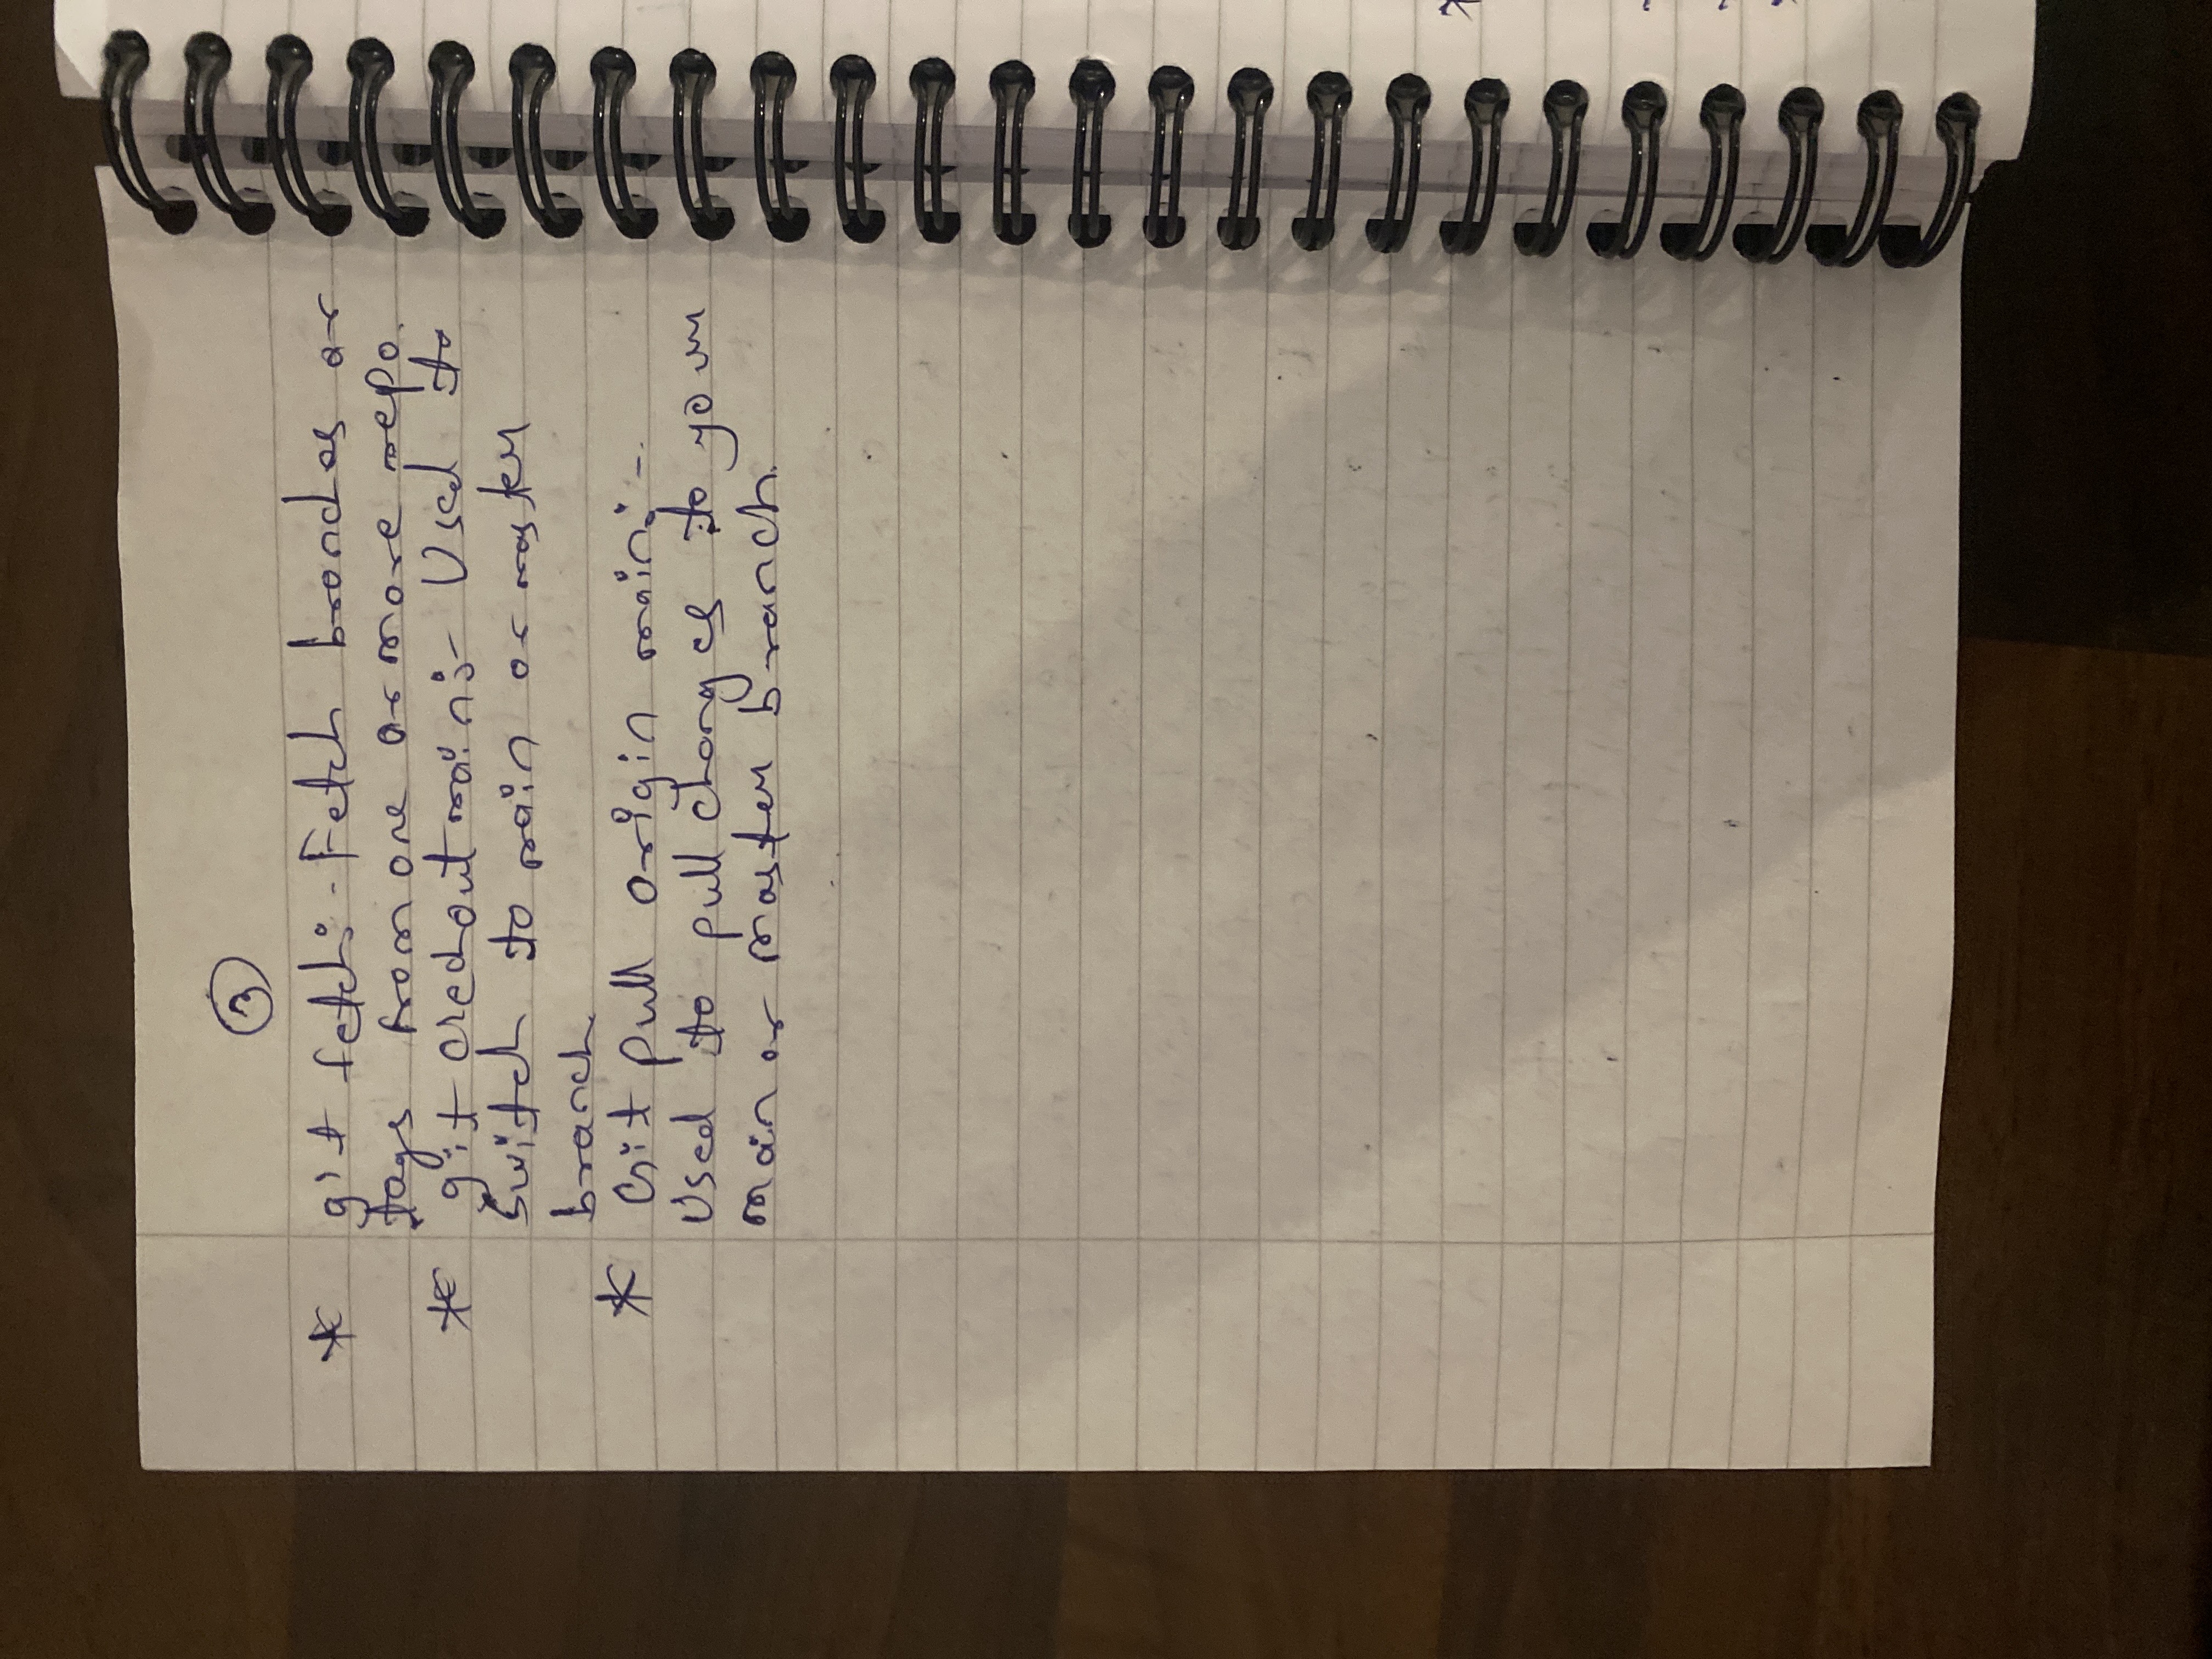 3
* git fetch:- Fetch branches or
tags from one or more repo.
* git checkout main:- Used to
switch to main or master
branch
* Git pull origin main:-
Used to pull changes to your
main or master branch.
*